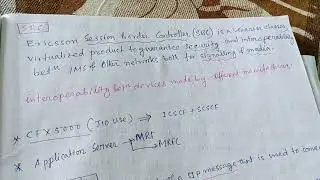 SBC
Ericsson Session Border Controller (SBC) is a
virtualized product to guarantee security and interoperability
betn IMS & other networks both for signalling & media.
interoperability betn devices made by different manufacturers.
* CFX5000 (JIO USE) ⇒ ICSCF + SCSCF
* Application Server → MRF
→ MRFC
SIP message that is used to